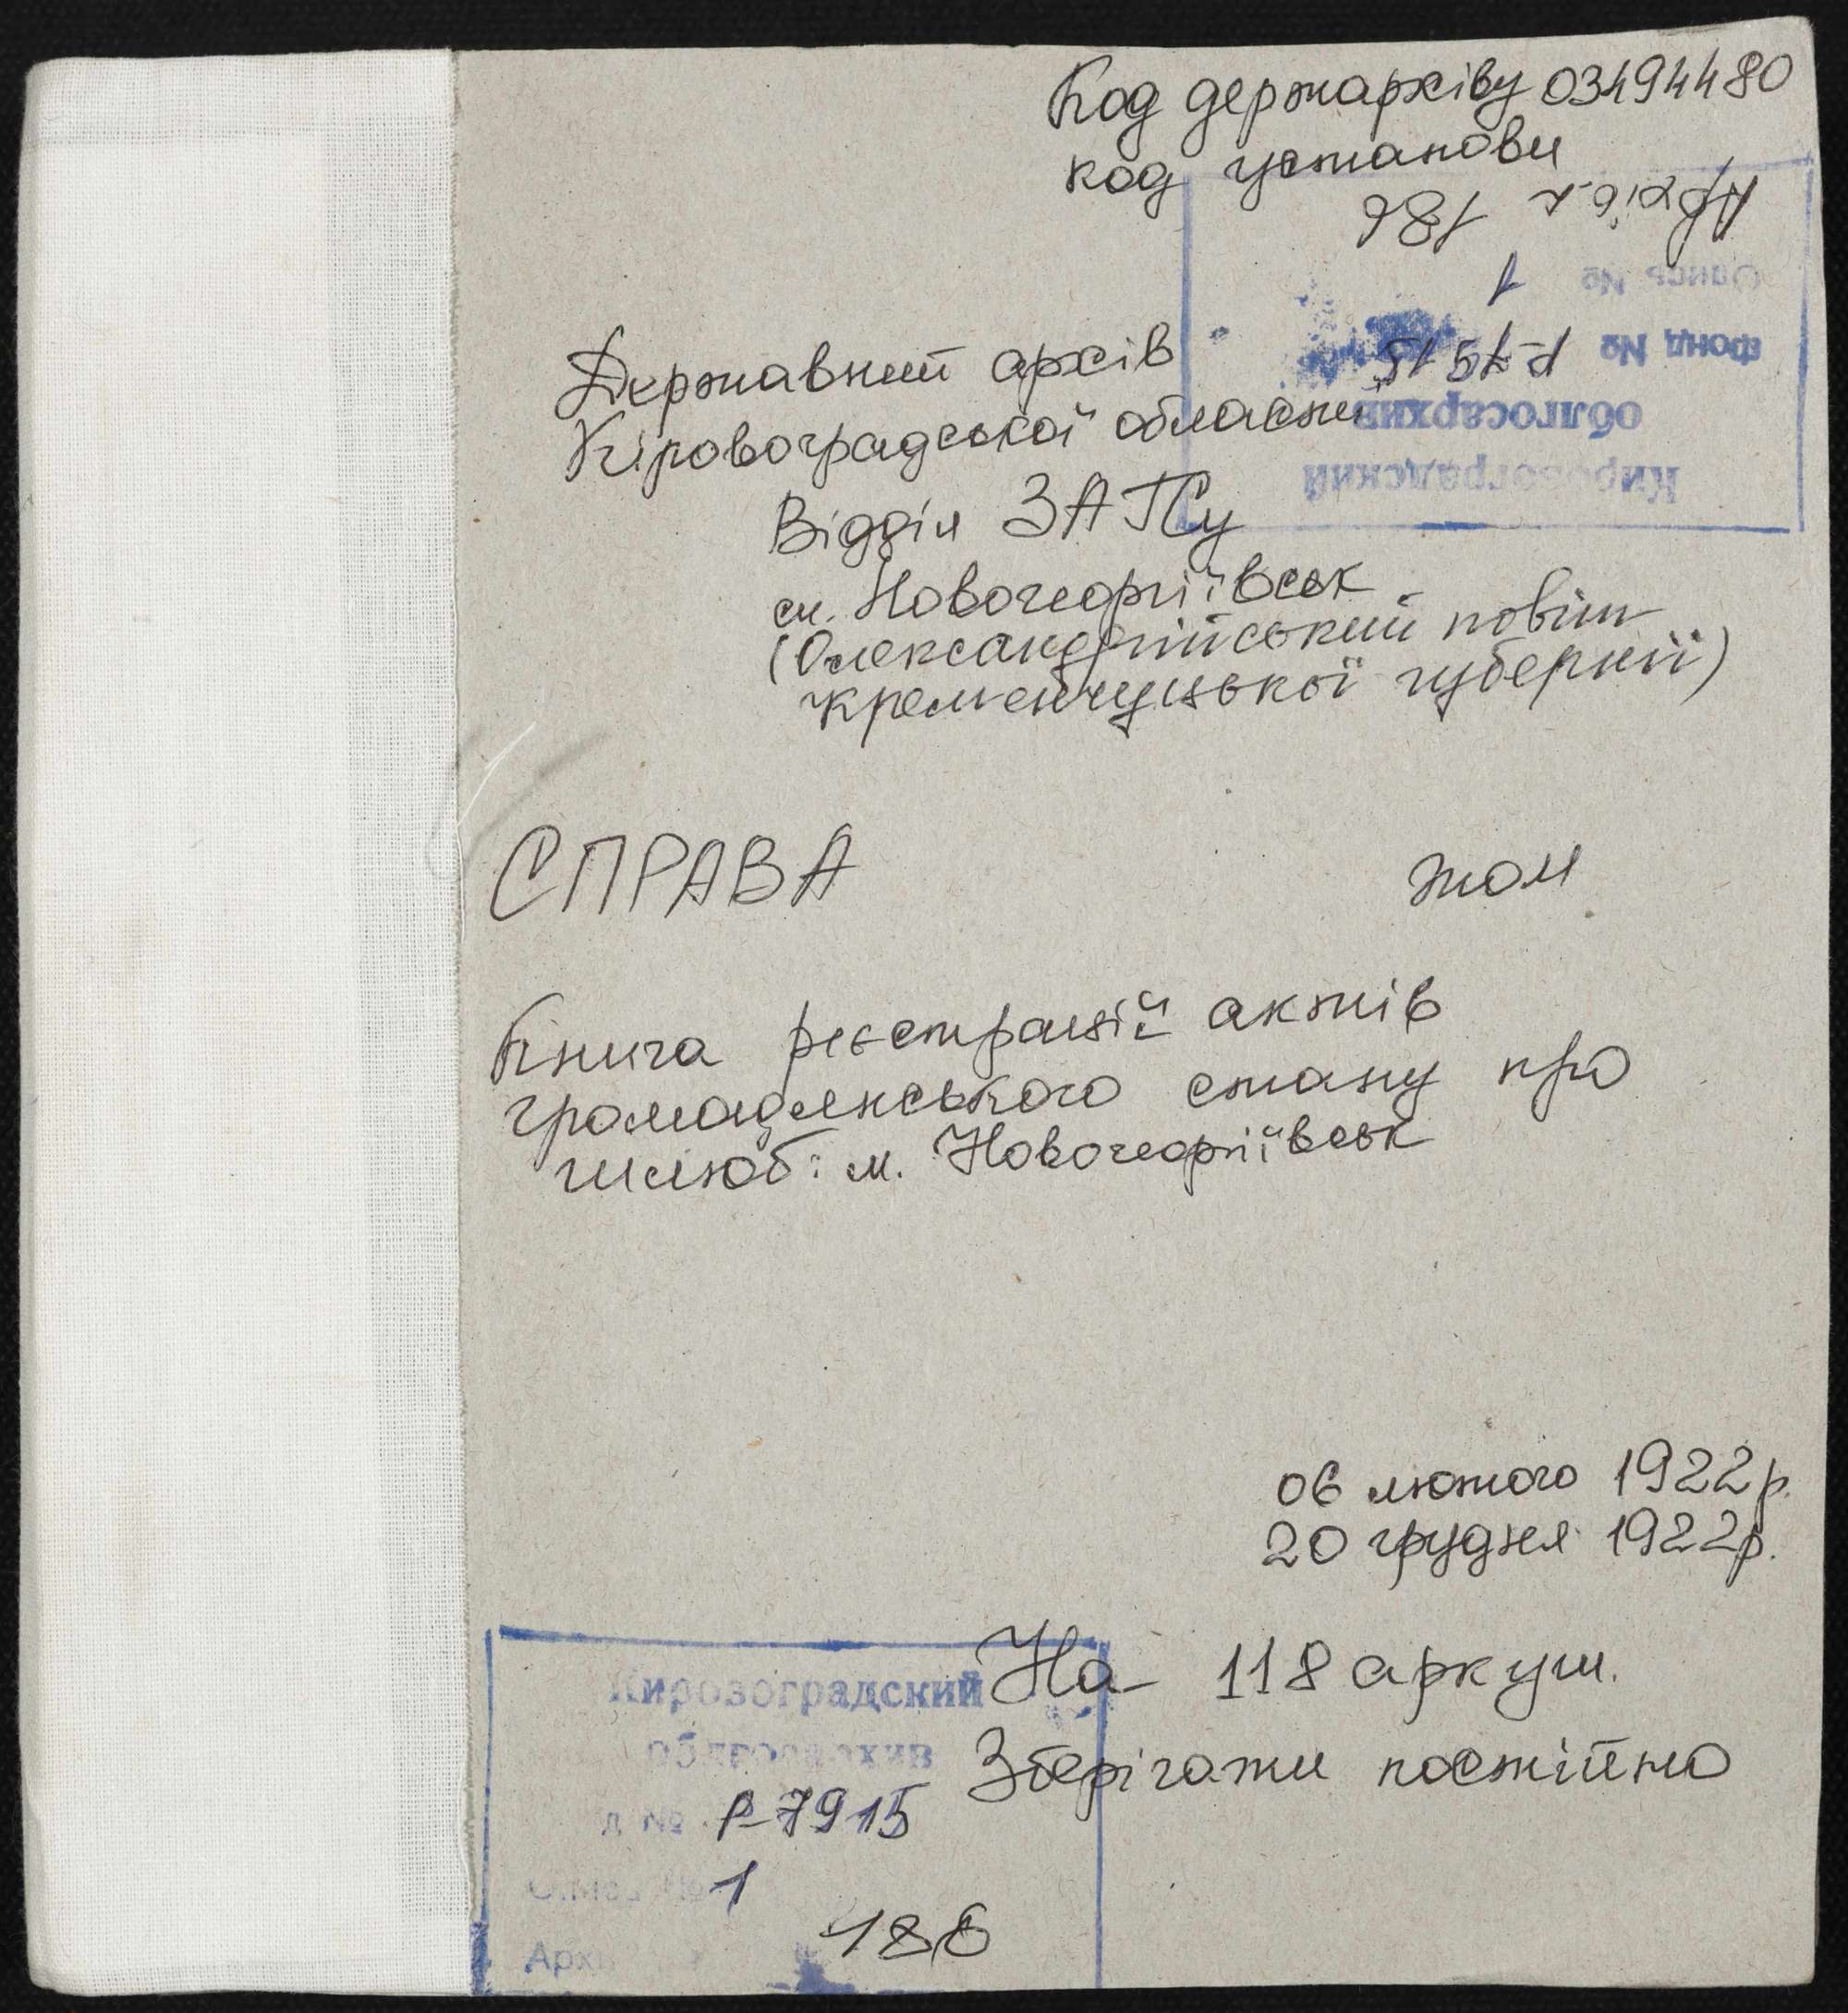 Код держархіву 03494480
код установи
Кировоградский
облгосархив
Фонд № Р-7915
Опись № 1
186
Державний архів
Кіровоградської області
Відділ ЗАГСу
см. Новогеоргіївськ
(Олександрійський повіт
Кременчуцької губернії)
СПРАВА том
Книга реєстрації актів
громадянського стану про
шлюб: м. Новогеоргіївськ
06 лютого 1922 р.
20 грудня 1922 р.
На 118 аркуш.
Зберігати постійно
Кировоградский
облгосархив
д № Р-7915
№ 1
Арх 186